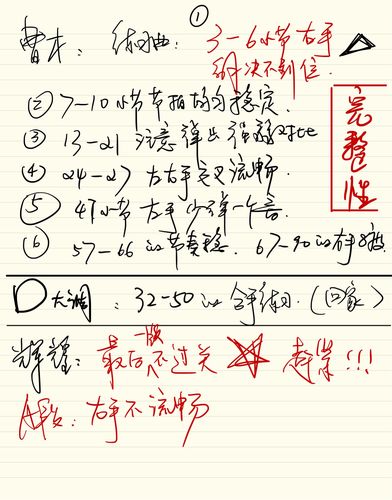 ①
曹才：练习曲：3-6小节右手
解决不到位.
②7-10小节节拍均匀稳定.
③ 13-21 注意弹出强弱对比
④ 24-27 左右手交叉流畅.
⑤ 47小节 左手少弹一个音.
⑥ 57-66的节奏稳. 67-90的右手
完整性
D大调：32-50的合手练习.(回家)
辉煌：最后一版不过关 赶紧!!!
A段：右手不流畅